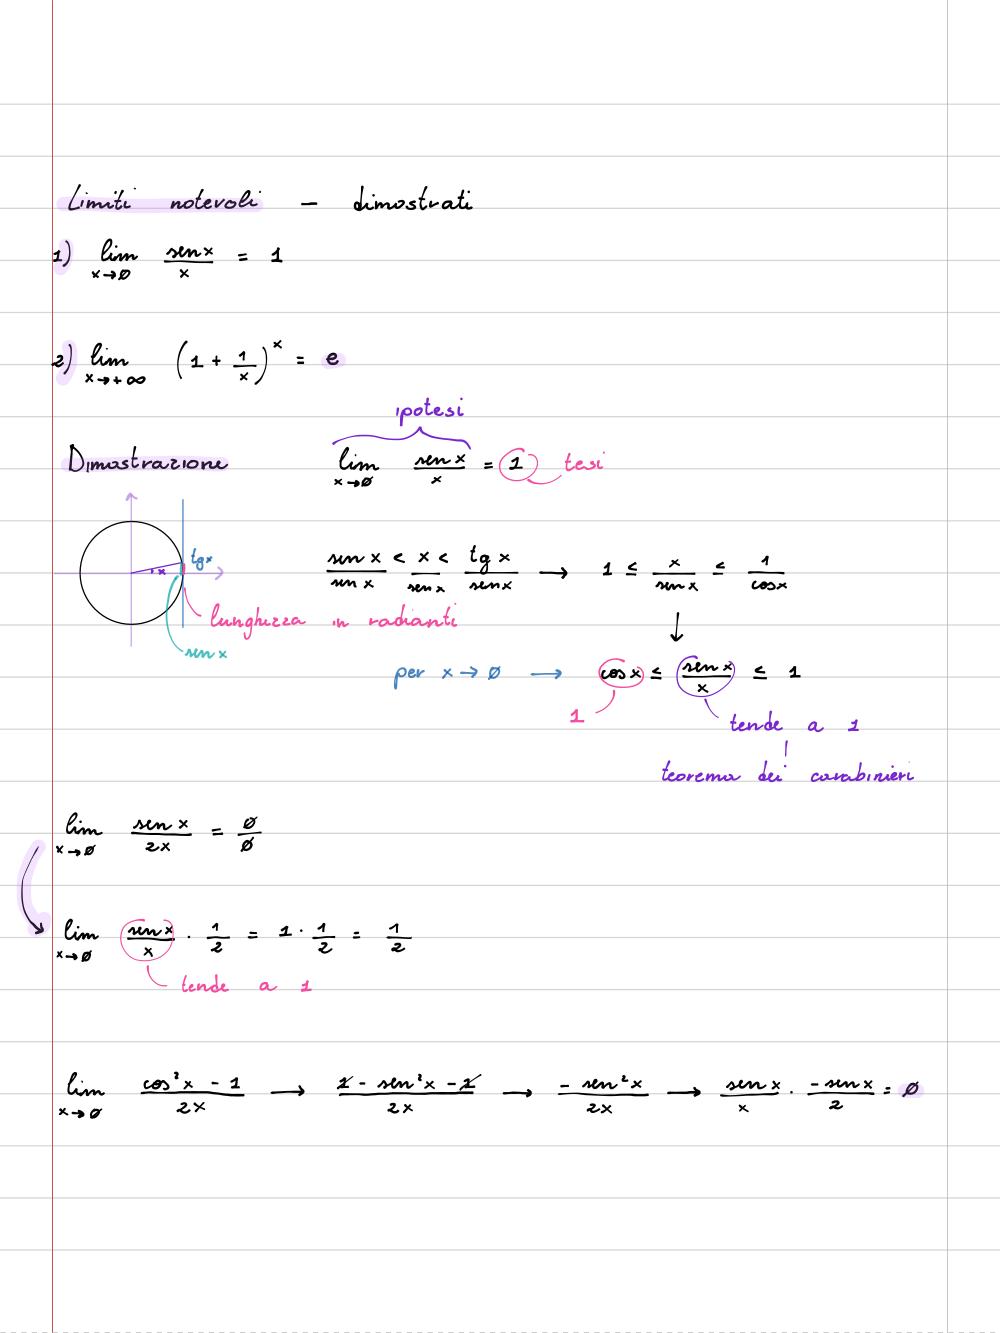 Limiti notevoli – dimostrati
1) lim x→0 sen x / x = 1
2) lim x→+∞ (1 + 1/x)^x = e
ipotesi
Dimostrazione lim x→0 sen x / x = 1 tesi
tg x
x
sen x / sen x < x / sen x < tg x / sen x → 1 ≤ x / sen x ≤ 1 / cos x
lunghezza in radianti
sen x
↓
per x → 0 → cos x ≤ sen x / x ≤ 1
1
tende a 1
teorema dei carabinieri
lim x→0 sen x / 2x = 0/0
lim x→0 sen x / x · 1/2 = 1 · 1/2 = 1/2
tende a 1
lim x→0 cos²x - 1 / 2x → 1 - sen²x - 1 / 2x → - sen²x / 2x → sen x / x · - sen x / 2 = 0